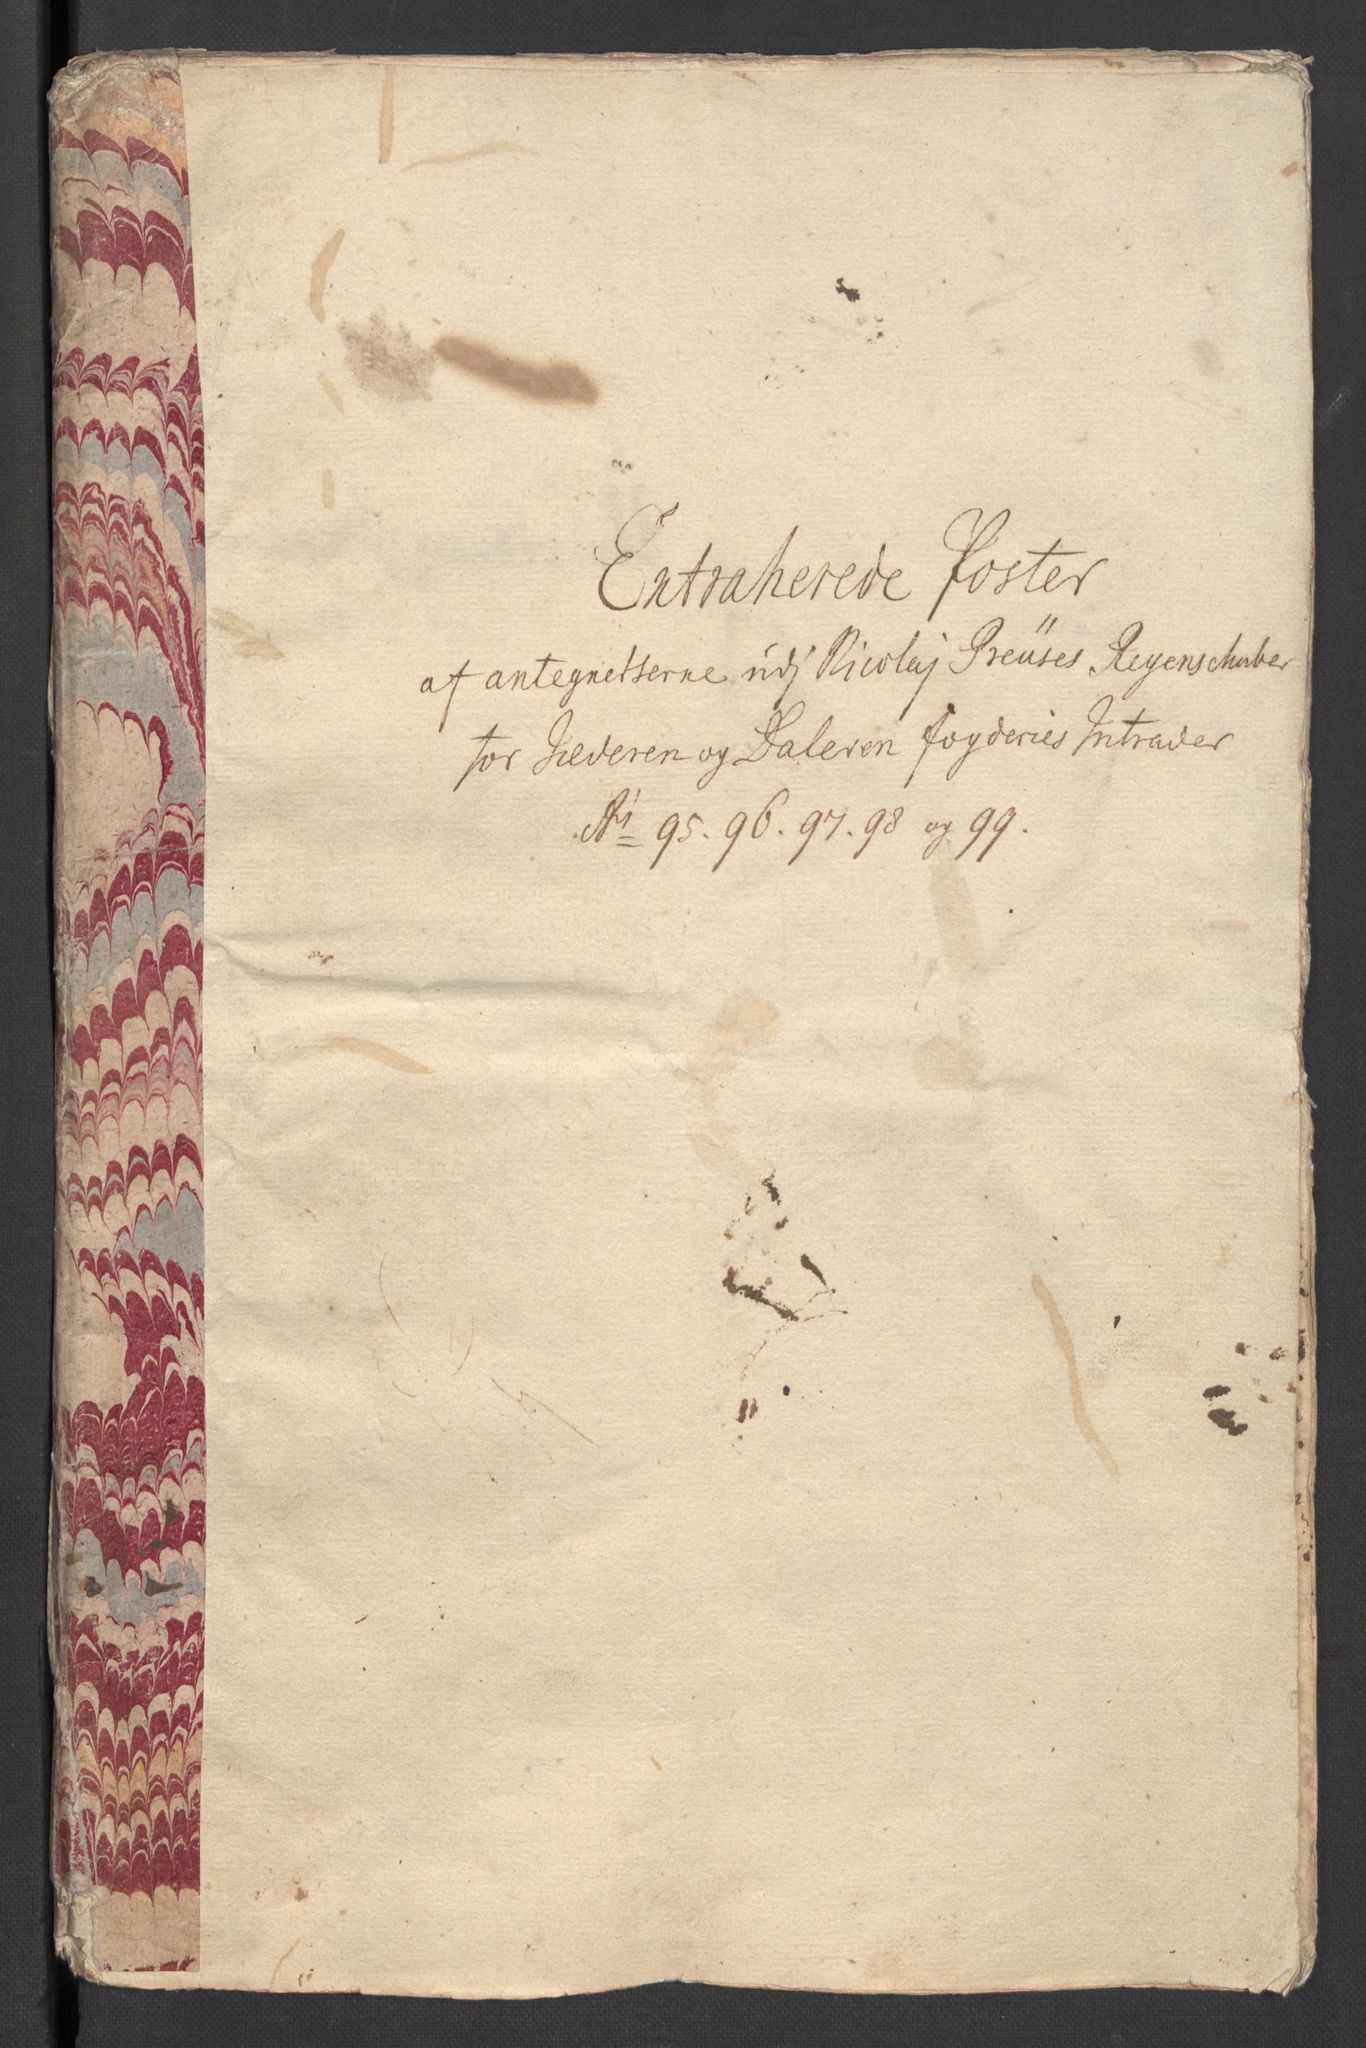 Extraherede Poster
af antegnelserne udj Nicolaj Preüses Regenschaber
for Jæderen og Dalernes fogderies Intrader
A͞i 95. 96. 97. 98 og 99.